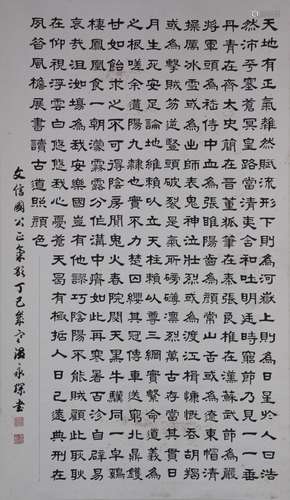 天地有正氣雜然賦流形下則為河嶽上則為日星於人曰浩
然沛乎塞蒼冥皇路當清夷含和吐明庭時窮節乃見一一垂
丹青在齊太史簡在晉董狐筆在秦張良椎在漢蘇武節為嚴
將軍頭為嵇侍中血為張睢陽齒為顏常山舌或為遼東帽清
操厲冰雪或為出師表鬼神泣壯烈或為渡江楫慷慨吞胡羯
或為擊賊笏逆豎頭破裂是氣所磅礴凜烈萬古存當其貫日
月生死安足論地維賴以立天柱賴以尊三綱實繫命道義為
之根嗟余遘陽九隸也實不力楚囚纓其冠傳車送窮北鼎鑊
甘如飴求之不可得陰房闃鬼火春院閟天黑牛驥同一皁雞
棲鳳凰食一朝濛霧露分作溝中瘠如此再寒暑百沴自辟易
哀哉沮洳場為我安樂國豈有他謬巧陰陽不能賊顧此耿耿
在仰視浮雲白悠悠我心憂蒼天曷有極哲人日已遠典刑在
夙昔風檐展書讀古道照顏色
文信國公正氣歌丁巳年冬溫永琛書